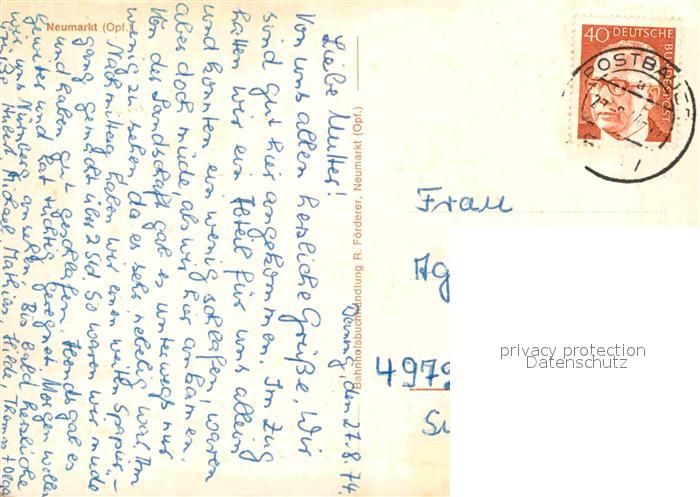 Neumarkt (Opf.)
Bahnhofsbuchhandlung R. Förderer, Neumarkt (Opf.)
den 27.8.74
Liebe Mutter!
Von uns allen herzliche Grüße. Wir
sind gut hier angekommen. Im Zug
hatten wir ein Abteil für uns allein
und konnten ein wenig schlafen, waren
aber doch müde, als wir hier ankamen.
Von der Landschaft gab es unterwegs nur
wenig zu sehen, da es sehr nebelig war. Im
Nachmittag haben wir einen weiten Spazier-
gang gemacht über 2 Std. So waren wir müde
und haben gut geschlafen. Abends gab es
Gewitter und hat tüchtig geregnet. Morgen wollen
wir uns Nürnberg ansehen. Bis bald herzliche
Grüße Hubert, Michael, Mathias, Hilde, Thomas + Helga
40 DEUTSCHE
BUNDESPOST
POSTBAUER
Frau
Ag
4979
privacy protection
Datenschutz